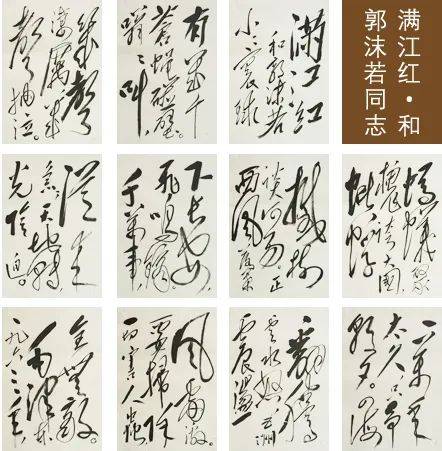 满江红·和
郭沫若同志
满江红
和郭沫若
小小寰球
有几个
苍蝇碰壁
嗡嗡叫
几声
凄厉几
声抽泣。
蚂蚁缘
槐夸大国
蚍蜉
撼树
谈何易。正
西风落叶
下长安，
飞鸣镝。
千万事
从来
急。天地转
光阴迫。
一万年
太久只争
朝夕。四海
翻腾
云水怒五洲
震荡
风雷激。
要扫除
一切害人虫
全无敌。
毛泽东
一九六三年